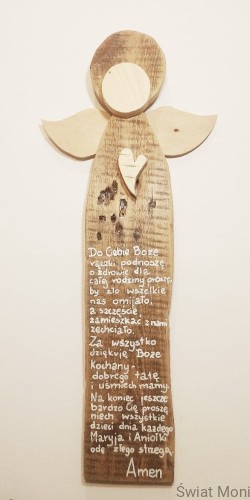 Do Ciebie Boże
rączki podnoszę
o zdrowie dla
całej rodziny proszę,
by zło wszelkie
nas omijało,
a szczęście
zamieszkać z nami
zechciało.
Za wszystko
dziękuję Boże
Kochany-
dobrego tatę
i uśmiech mamy.
Na koniec jeszcze
bardzo Cię proszę
niech wszystkie
dzieci dnia każdego
Maryja i Aniołki
odę złego strzegą
Amen
Świat Moni